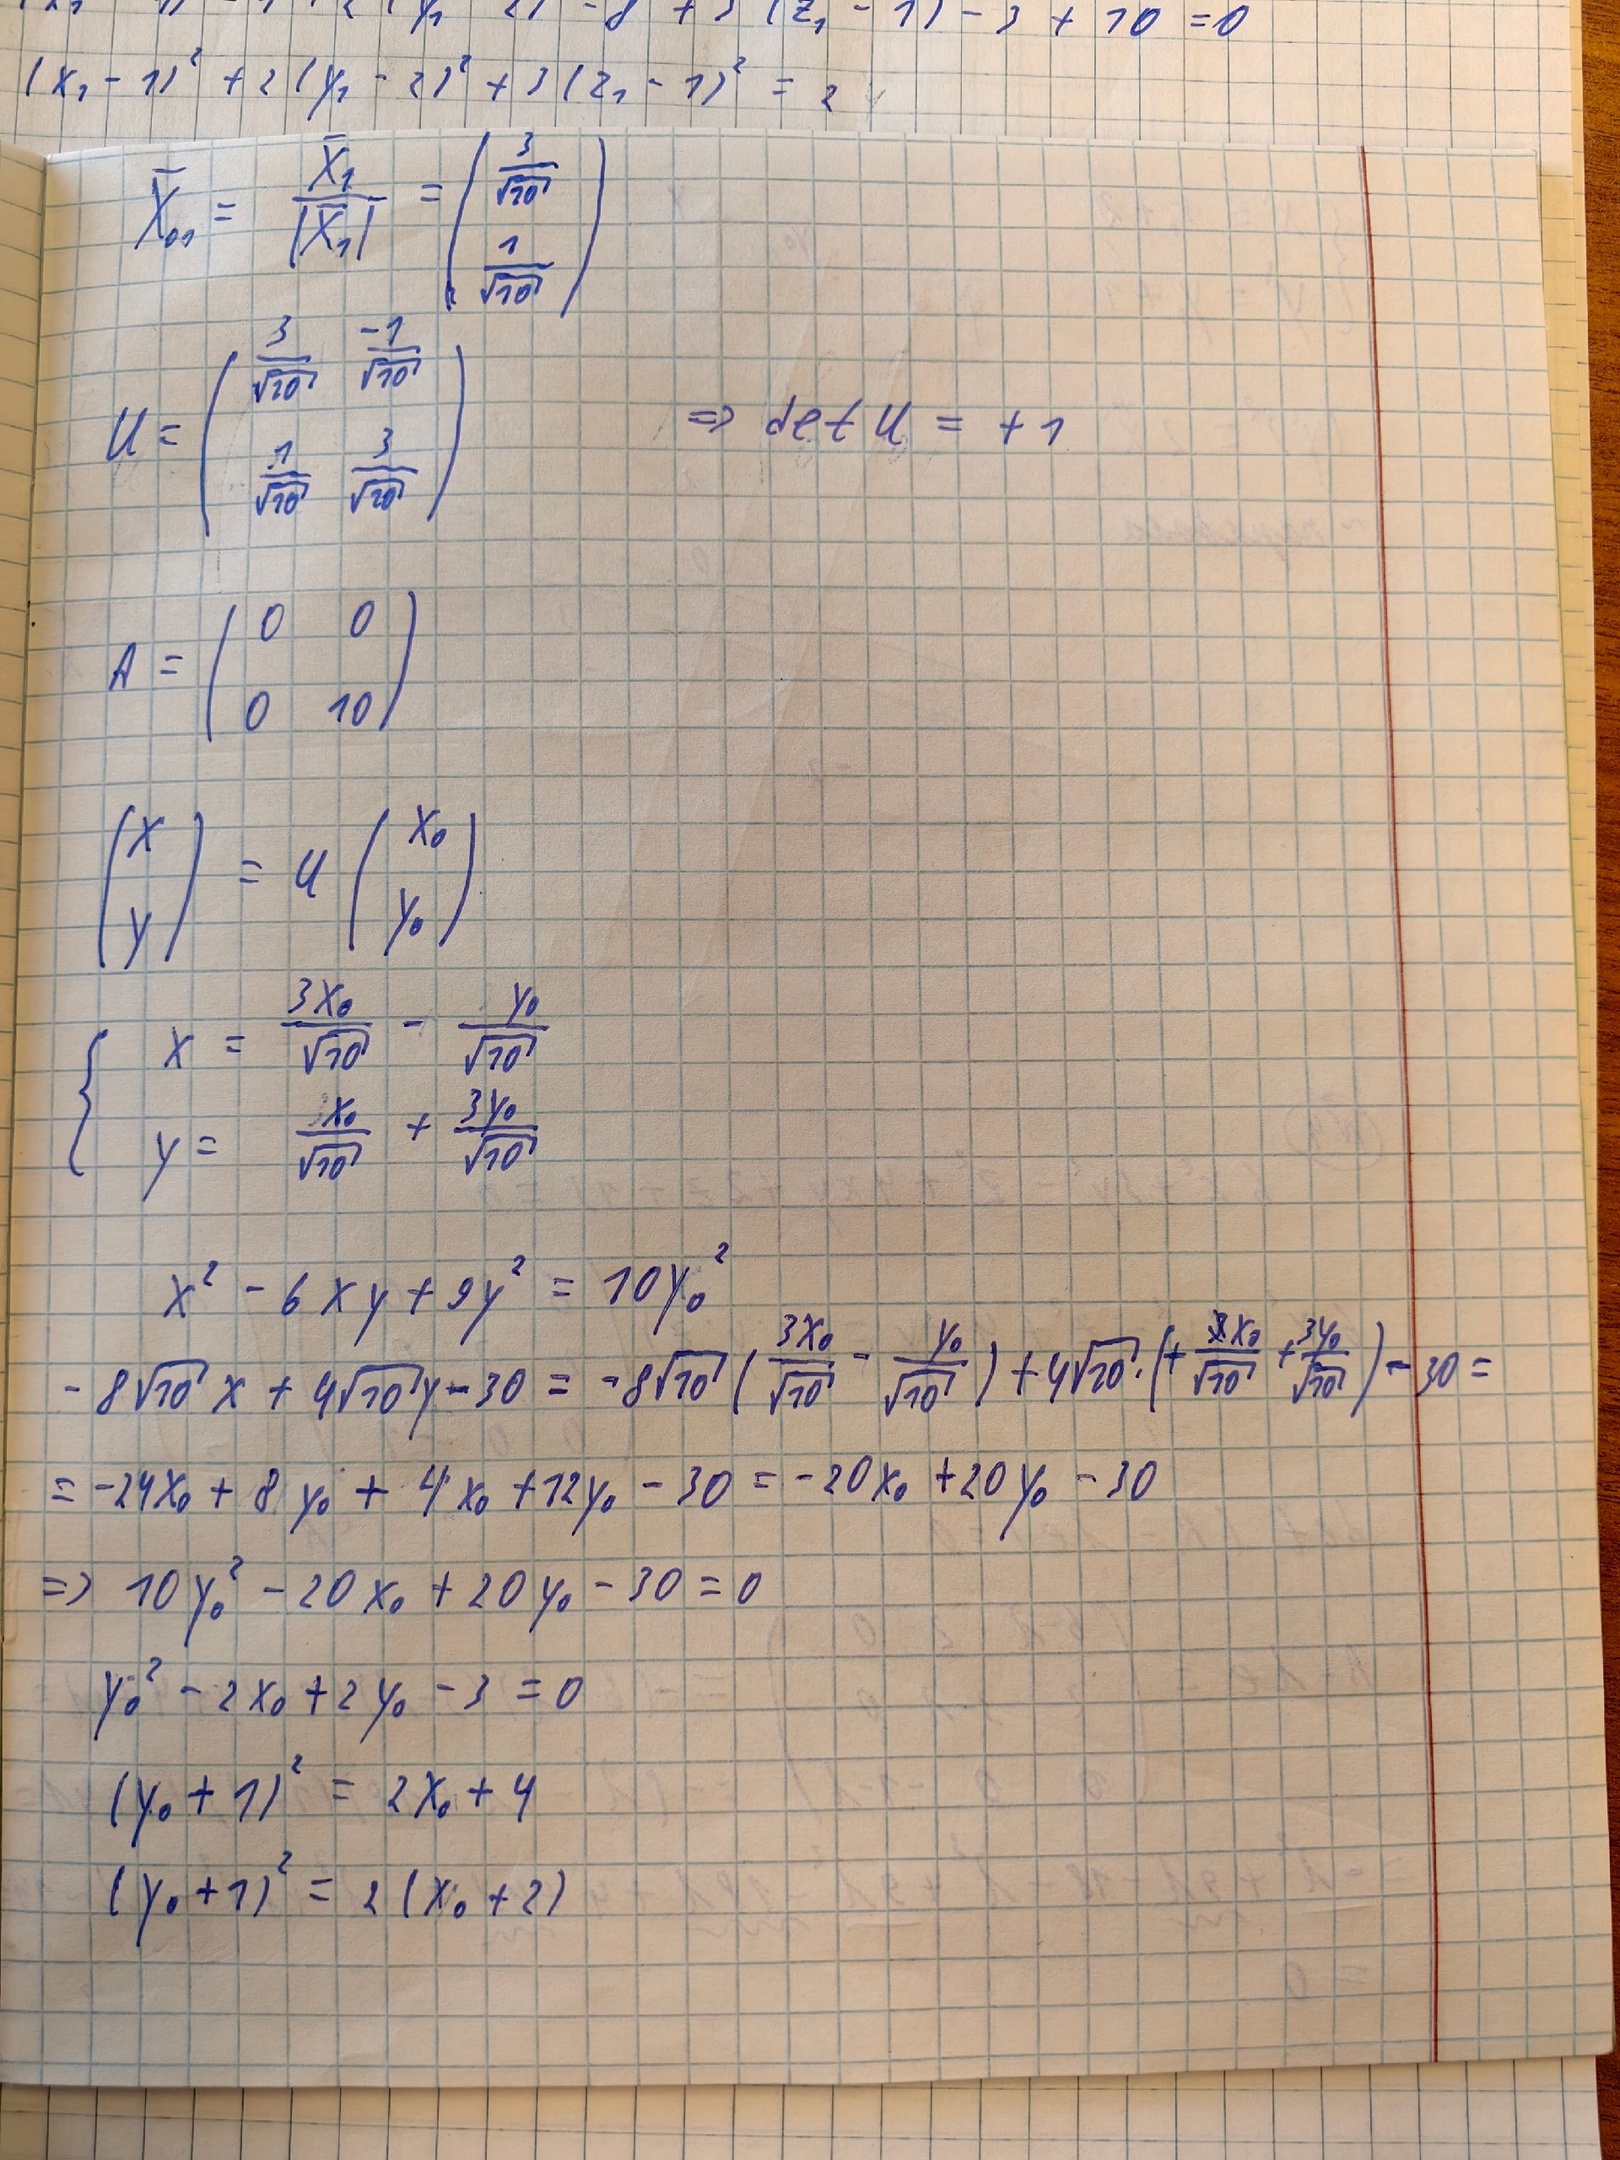 (x₁ - 1)² + 2(y₁ - 2)² + 3(z₁ - 1)² = 2
X̄₀₁ = X̄₁ / |X̄₁| = ( 3/√10 ; 1/√10 )
U = ( 3/√10 -1/√10 ; 1/√10 3/√10 ) => det U = +1
A = ( 0 0 ; 0 10 )
( x ; y ) = U ( x₀ ; y₀ )
{ x = 3x₀/√10 - y₀/√10
y = x₀/√10 + 3y₀/√10
x² - 6xy + 9y² = 10y₀²
-8√10 x + 4√10 y - 30 = -8√10 ( 3x₀/√10 - y₀/√10 ) + 4√10 · ( + x₀/√10 + 3y₀/√10 ) - 30 =
= -24x₀ + 8y₀ + 4x₀ + 12y₀ - 30 = -20x₀ + 20y₀ - 30
=> 10y₀² - 20x₀ + 20y₀ - 30 = 0
y₀² - 2x₀ + 2y₀ - 3 = 0
(y₀ + 1)² = 2x₀ + 4
(y₀ + 1)² = 2(x₀ + 2)